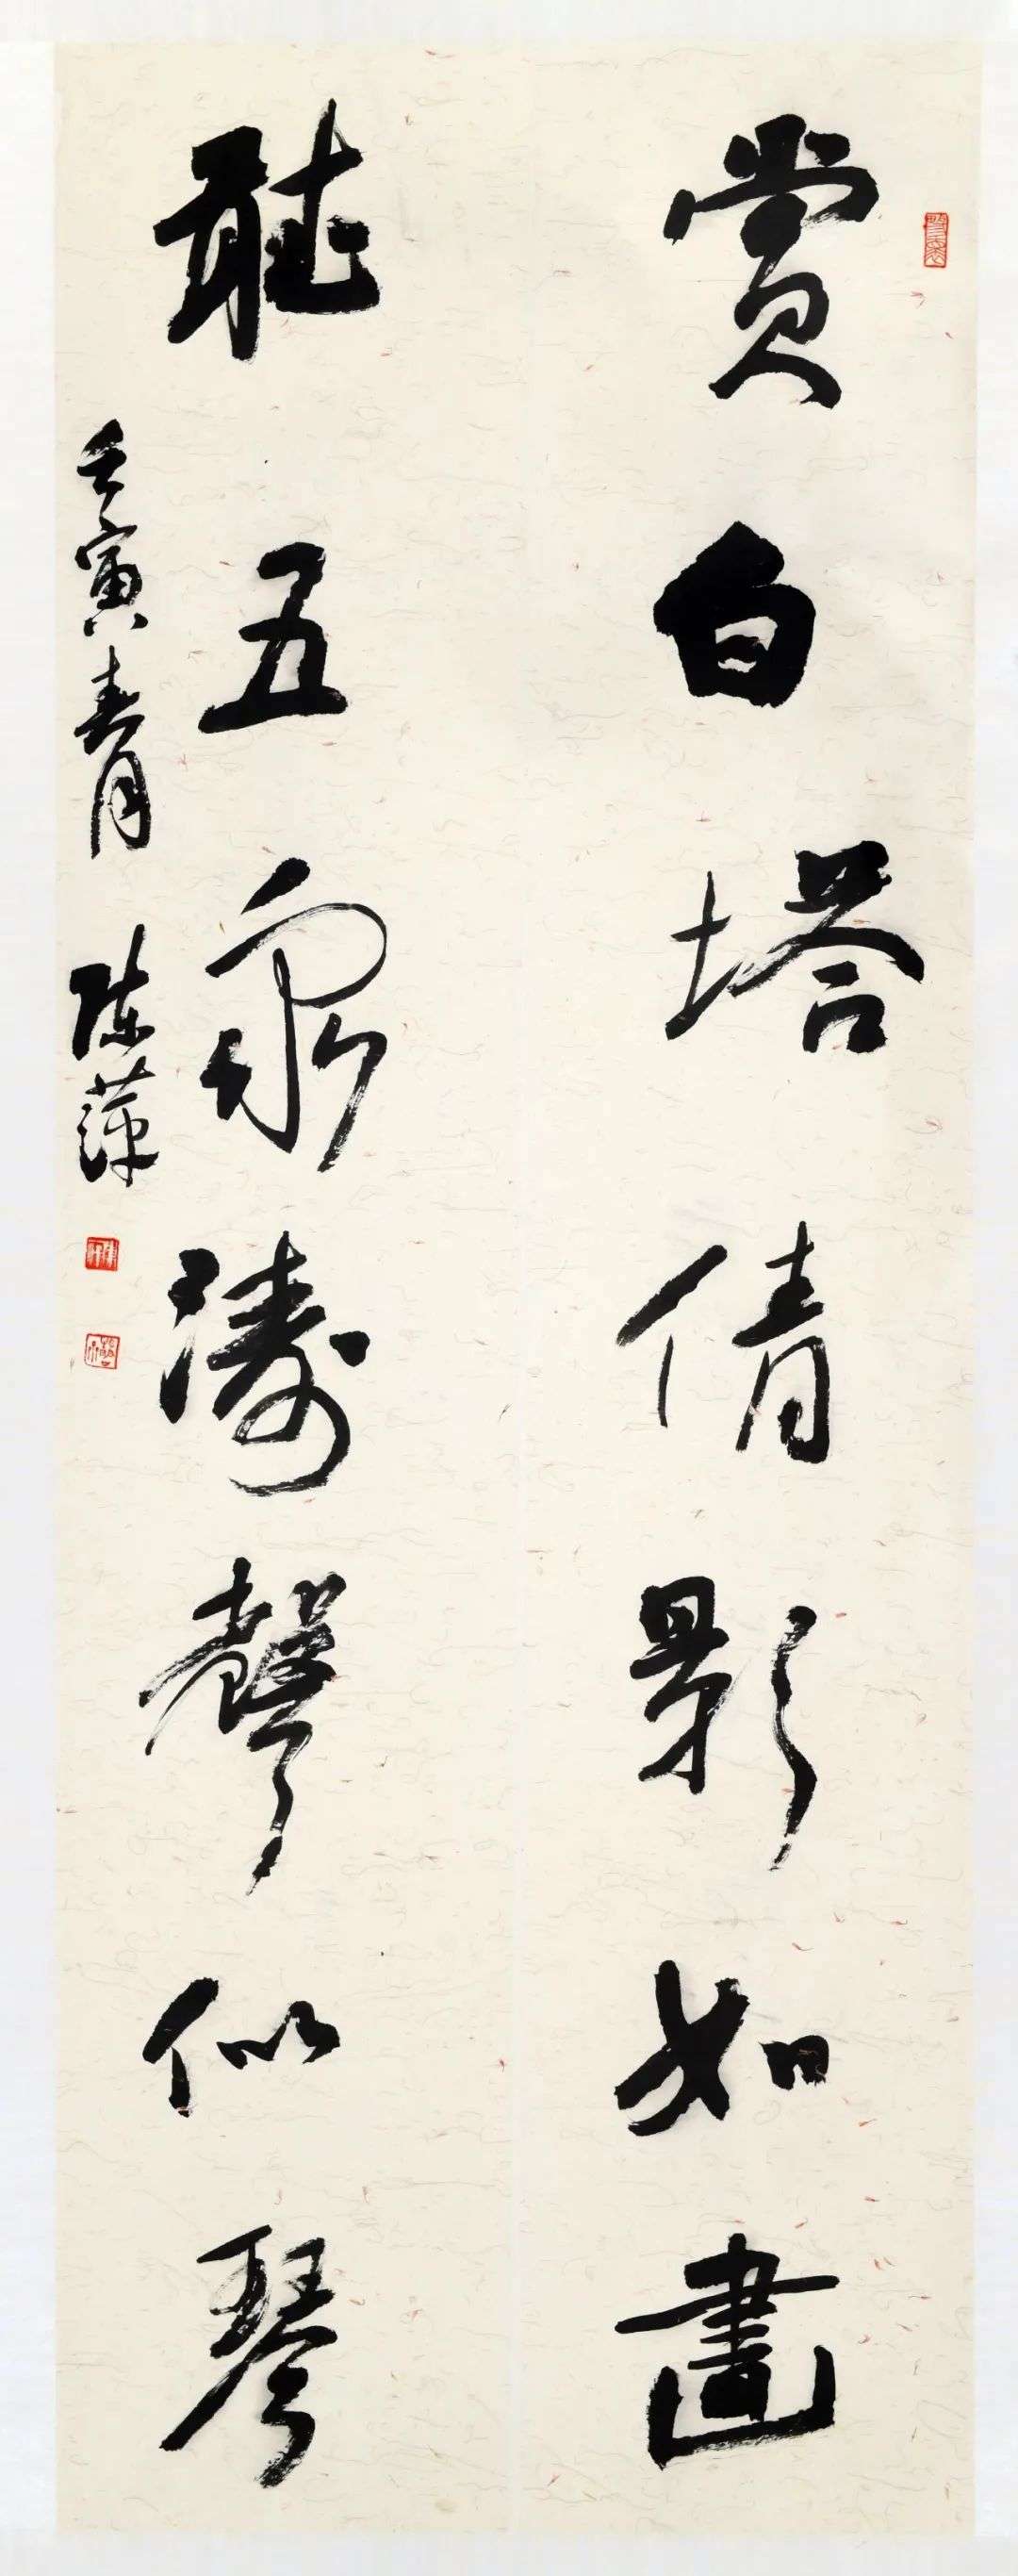 賞白塔倩影如畫
聽五泉濤聲似琴
壬寅春月 陳萍